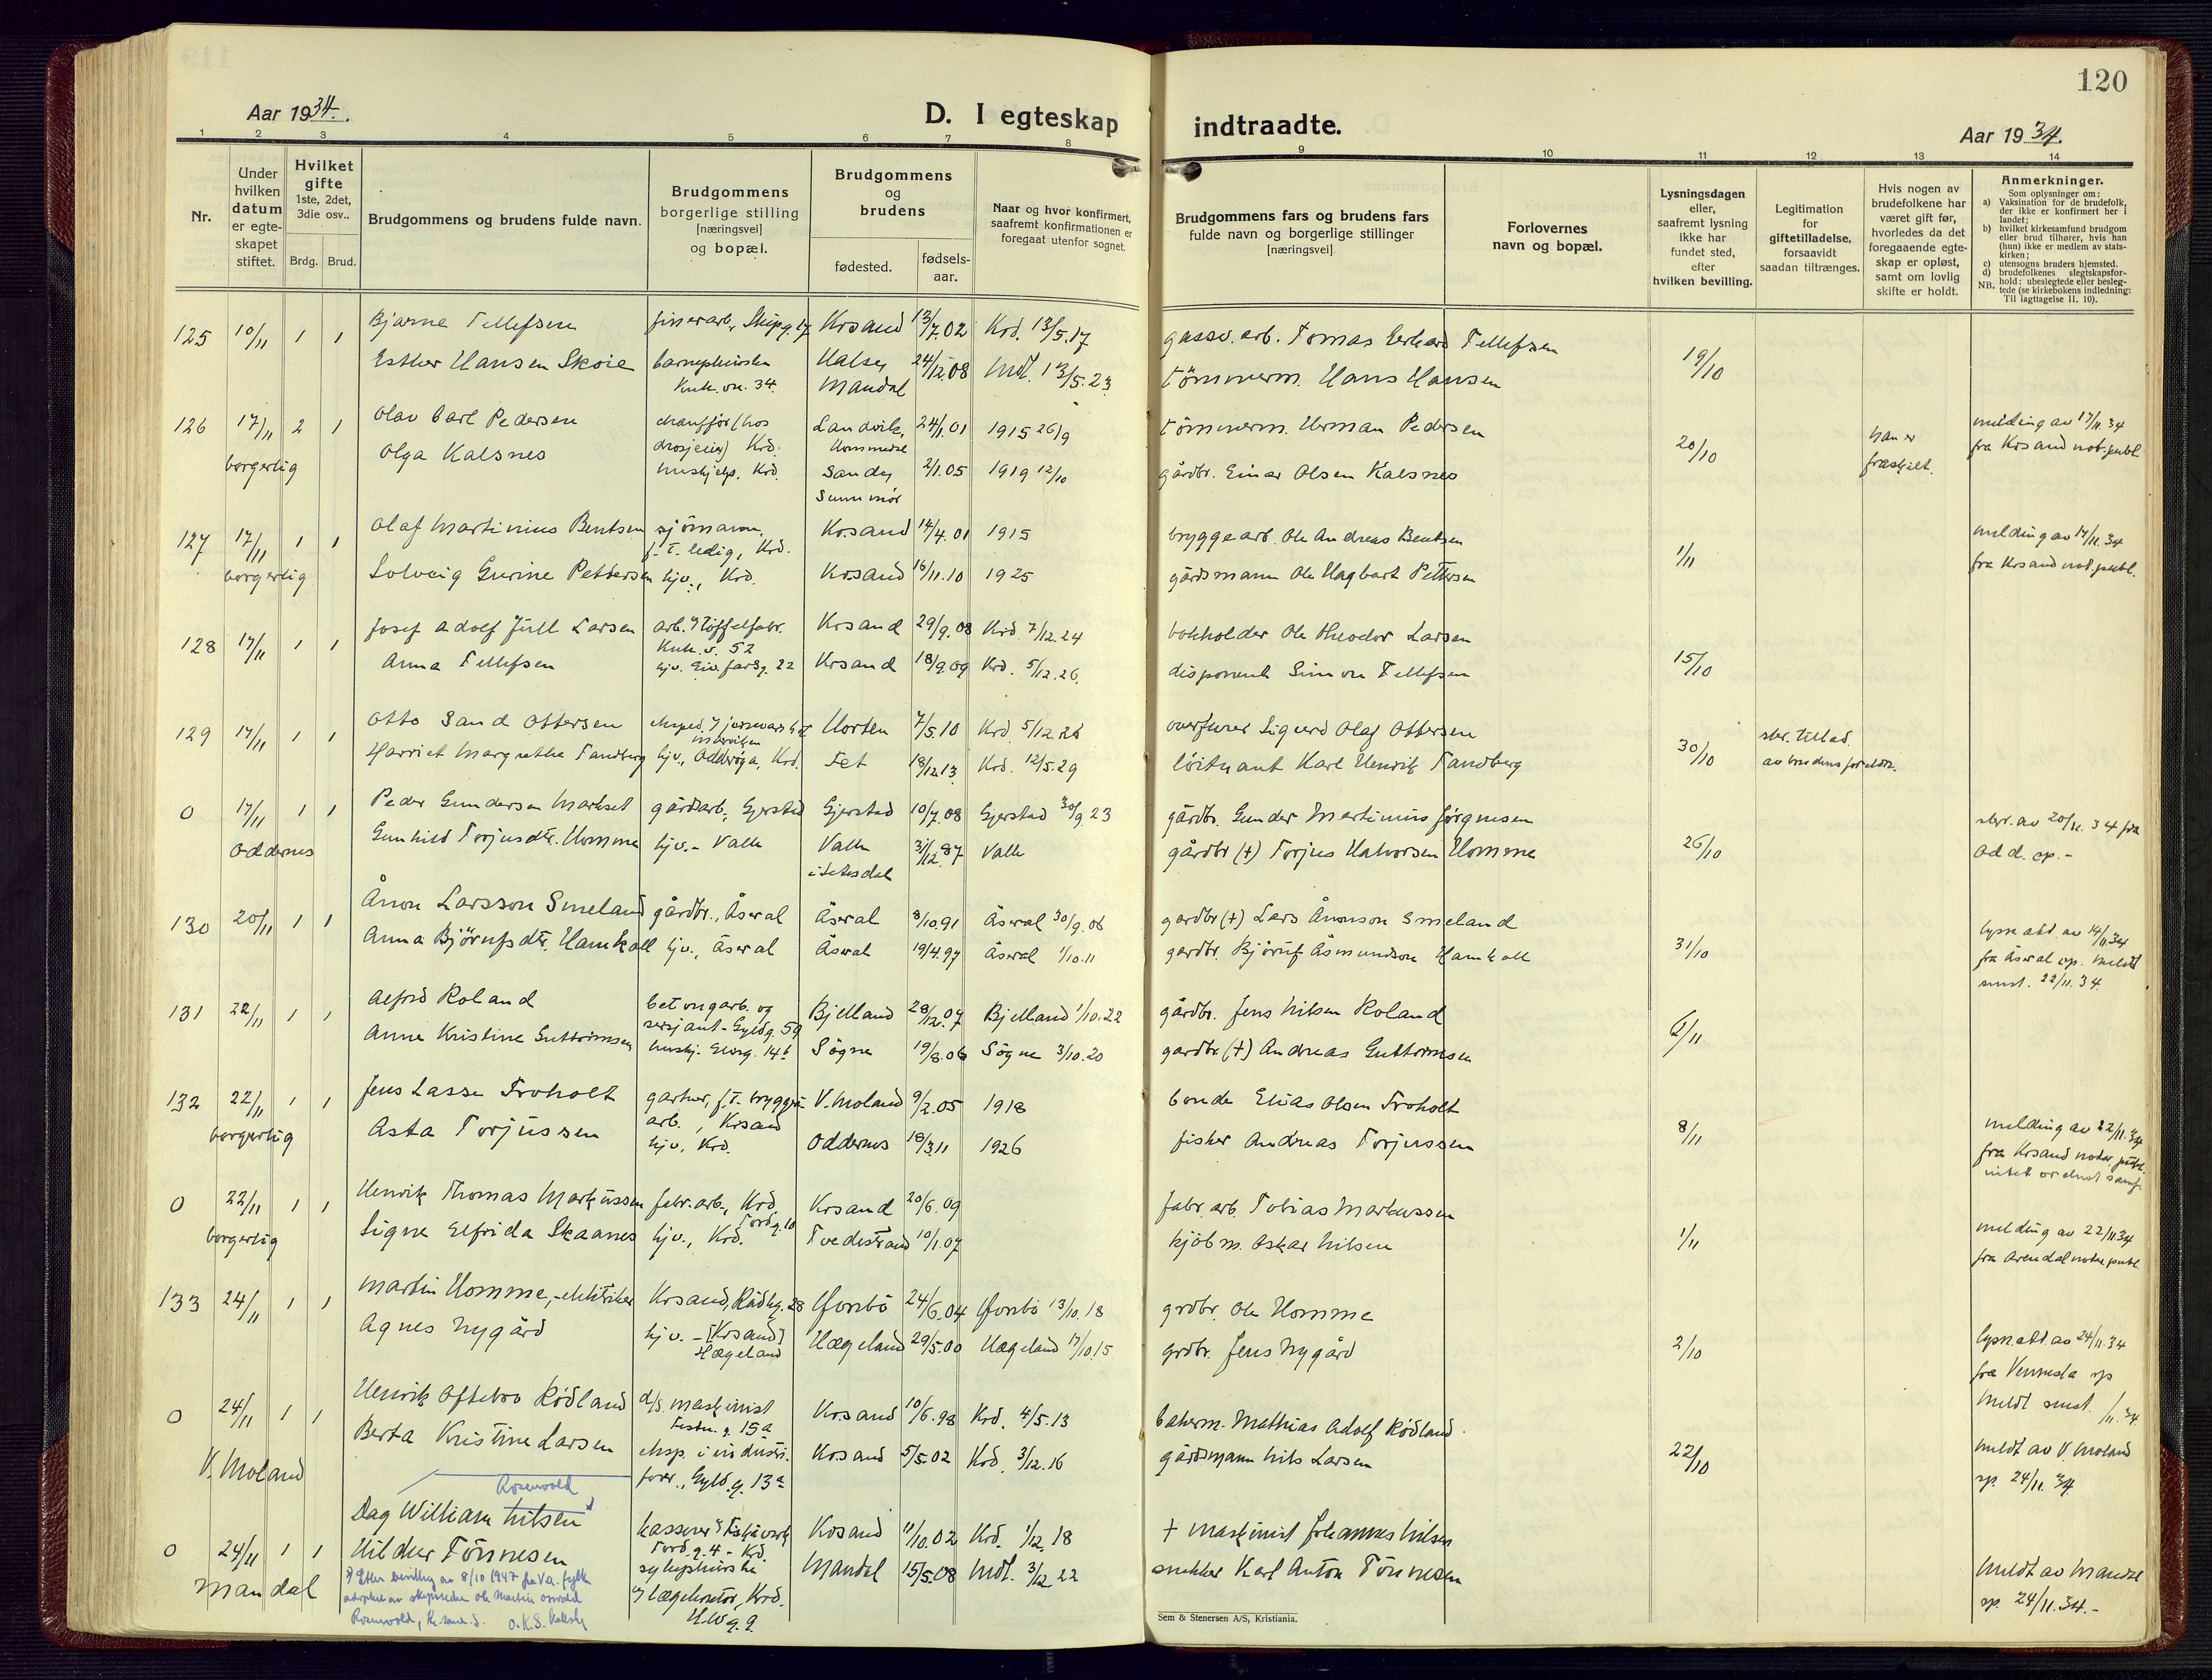 120
Aar 1934.
D. I egteskap indtraadte.
Aar 1934.
1 2 3 4 5 6 7 8 9 10 11 12 13 14
Nr.
Under hvilken datum er egte-skapet stiftet.
Hvilket gifte 1ste, 2det, 3die osv..
Brdg. Brud.
Brudgommens og brudens fulde navn.
Brudgommens borgerlige stilling [næringsvei] og bopæl.
Brudgommens og brudens
fødested. fødsels-aar.
Naar og hvor konfirmert, saafremt konfirmationen er foregaat utenfor sognet.
Brudgommens fars og brudens fars fulde navn og borgerlige stillinger [næringsvei]
Forlovernes navn og bopæl.
Lysningsdagen eller, saafremt lysning ikke har fundet sted, efter hvilken bevilling.
Legitimation for giftetilladelse, forsaavidt saadan tiltrænges.
Hvis nogen av brudefolkene har været gift før, hvorledes da det foregaaende egte-skap er opløst, samt om lovlig skifte er holdt.
Anmerkninger.
Som oplysninger om:
a) Vaksination for de brudefolk, der ikke er konfirmert her i landet;
b) hvilket kirkesamfund brudgom eller brud tilhører, hvis han (hun) ikke er medlem av stats-kirken;
c) utensogns bruders hjemsted.
d) brudefolkenes slegtskapsfor-hold: ubeslegtede eller besleg-tede (se kirkebokens indledning: Til Iagttagelse II. 10).
NB.
125 10/11 1 1 Bjarne Tellefsen finerarb., Skipg. 17 Krsand 13/7.02 Krd. 13/5.17 gassv.arb. Tomas Gerhard Tellefsen
Esther Hansen Skoie Halse, Mandal 24/12.08 Mdl. 13/5.23 tömmerm. Hans Hansen 19/10
126 17/11 2 1 Olav Carl Pedersen chauffør (hos drosjeeier) Krd. Landvik, Hommedal 24/1.01 1915 26/9 tömmerm. Herman Pedersen 20/10 han er fraskilt. melding av 17/11.34
borgerlig Olga Kalsnes hushjelp, Krd. Sande, Sunnmör 2/1.05 1919 12/10 gårdbr. Einar Olsen Kalsnes fra Krsand not.publ.
127 17/11 1 1 Olaf Martinius Bentsen sjömann, f.t. ledig, Krd. Krsand 14/4.01 1915 bryggearb. Ole Andreas Bentsen 1/11 melding av 17/11.34
borgerlig Solveig Gurine Pettersen hjv., Krd. Krsand 16/11.10 1925 gårdsmann Ole Hagbart Pettersen fra Krsand not.publ.
128 17/11 1 1 Josef Adolf Jull Larsen arb. i töffelfabr. Kuh.v. 52 Krsand 29/9.08 Krd. 7/12.24 bokholder Ole Theodor Larsen
Anna Tellefsen hjv. 22 Krsand 18/9.09 Krd. 5/12.26. disponent Simon Tellefsen 15/10
129 17/11 1 1 Otto Sand Ottersen Horten 7/5.10 Krd. 5/12.26 overfurer Sigurd Olaf Ottersen 30/10 skr. tillad. av brudens foreldr.
Harriet Margrethe Tandberg hjv., Odderöya, Krd. Fet 18/12.13 Krd. 12/5.29 löitnant Karl Henrik Tandberg
0 17/11 1 1 Peder Gundersen Markset gårdsarb., Gjerstad Gjerstad 10/7.08 Gjerstad 30/9 23 gårdbr. Gunder Martinius Jörgensen skr. av 20/11.34 fra
Oddernes Gunhild Torjusdtr. Homme hjv.- Valle Valle i Setesdal 31/12.87 Valle gårdbr (+) Torjus Halvorsen Homme 26/10 Odd. sp.-
130 20/11 1 1 Ånon Larsson Smeland gårdbr., Åseral Åseral 8/10.91 Åseral 30/9.06 gardbr (+) Lars Ånonson Smeland 31/10 lysn.att. av 14/11.34
Anna Bjørufsdtr. Hamkoll hjv., Åseral Åseral 19/4.97 Åseral 1/10.11 gardbr. Bjøruf Åsmundson Hamkoll fra Åseral sp. meldt smst. 22/11.34
131 22/11 1 1 Alfred Roland betongarb. og sersjant - Gyldg. 59 Bjelland 28/12.07 Bjelland 1/10.22 gårdbr. Jens Nilsen Roland 6/11
Anna Kristine Guttormsen hushj. 14b Sögne 19/8.06 Sögne 3/10.20 gardbr (+) Andreas Guttormsen
132 22/11 1 1 Jens Lasse Froholt gartner, f.t. bryggeri arb., Krsand V. Moland 9/2.05 1918 bonde Elias Olsen Froholt 8/11 melding av 22/11.34
borgerlig Asta Torjussen hjv., Krd. Oddernes 18/3.11 1926 fisker Andreas Torjussen fra Krsand notar. publ.
0 22/11 1 1 Henrik Thomas Markussen fabr.arb., Krd. Tordg. 10 Krsand 20/6.09 fabr.arb. Tobias Markussen 1/11 melding av 22/11.34
borgerlig Signe Elfrida Skaanes hjv., Krd. Tvedestrand 10/1.07 kjöbm. Oskar Nilsen fra Arendal notar. publ.
133 24/11 1 1 Martin Homme, - elektriker Krsand, Rådhg. 28 Öfvrebö 24/6.04 Öfvrebö 13/10.18 grdbr. Ole Homme
Agnes Nygård hjv. - [Krsand] Hægeland Hægeland 29/5.00 Hægeland 17/10.15 grdbr. Jens Nygård 2/10 lysn.att. av 24/11.34 fra Vennesla sp meldt smst. /11.34
0 24/11 1 1 Henrik Oftebro Rödland d/s. maskinist Festn.g. 15a Krsand 10/6.98 Krd. 4/5.13 bakerm. Mathias Adolf Rödland.
V. Moland Berta Kristine Larsen eksp. i industri-forr., Gyld.g. 13a Krsand 5/5.02 Krd. 3/12.16 gårdsmann Nils Larsen 22/10 meldt av V. Moland sp. 24/11.34
Rosenvold
Dag William Nilsen x) kasserer Tord.g. 4 - Krd. Krsand 11/10.02 Krd. 1/12.18 + maskinist Johannes Nilsen
0 24/11 1 1 Hildur Tönnesen sykepleierske Mandal 15/5.08 Mdl. 3/12 22 snekker Karl Anton Tönnesen meldt av Mandal
Mandal x) Efter bevilling av 8/10 1947 fra V.a. fylke lægekontor, Krd. sp. 24/11.34.-
adoptert av skipsreder Ole Martin Osvald
Rosenvold, Kr.sand S. O.K.S.
Sem & Stenersen A/S, Kristiania.